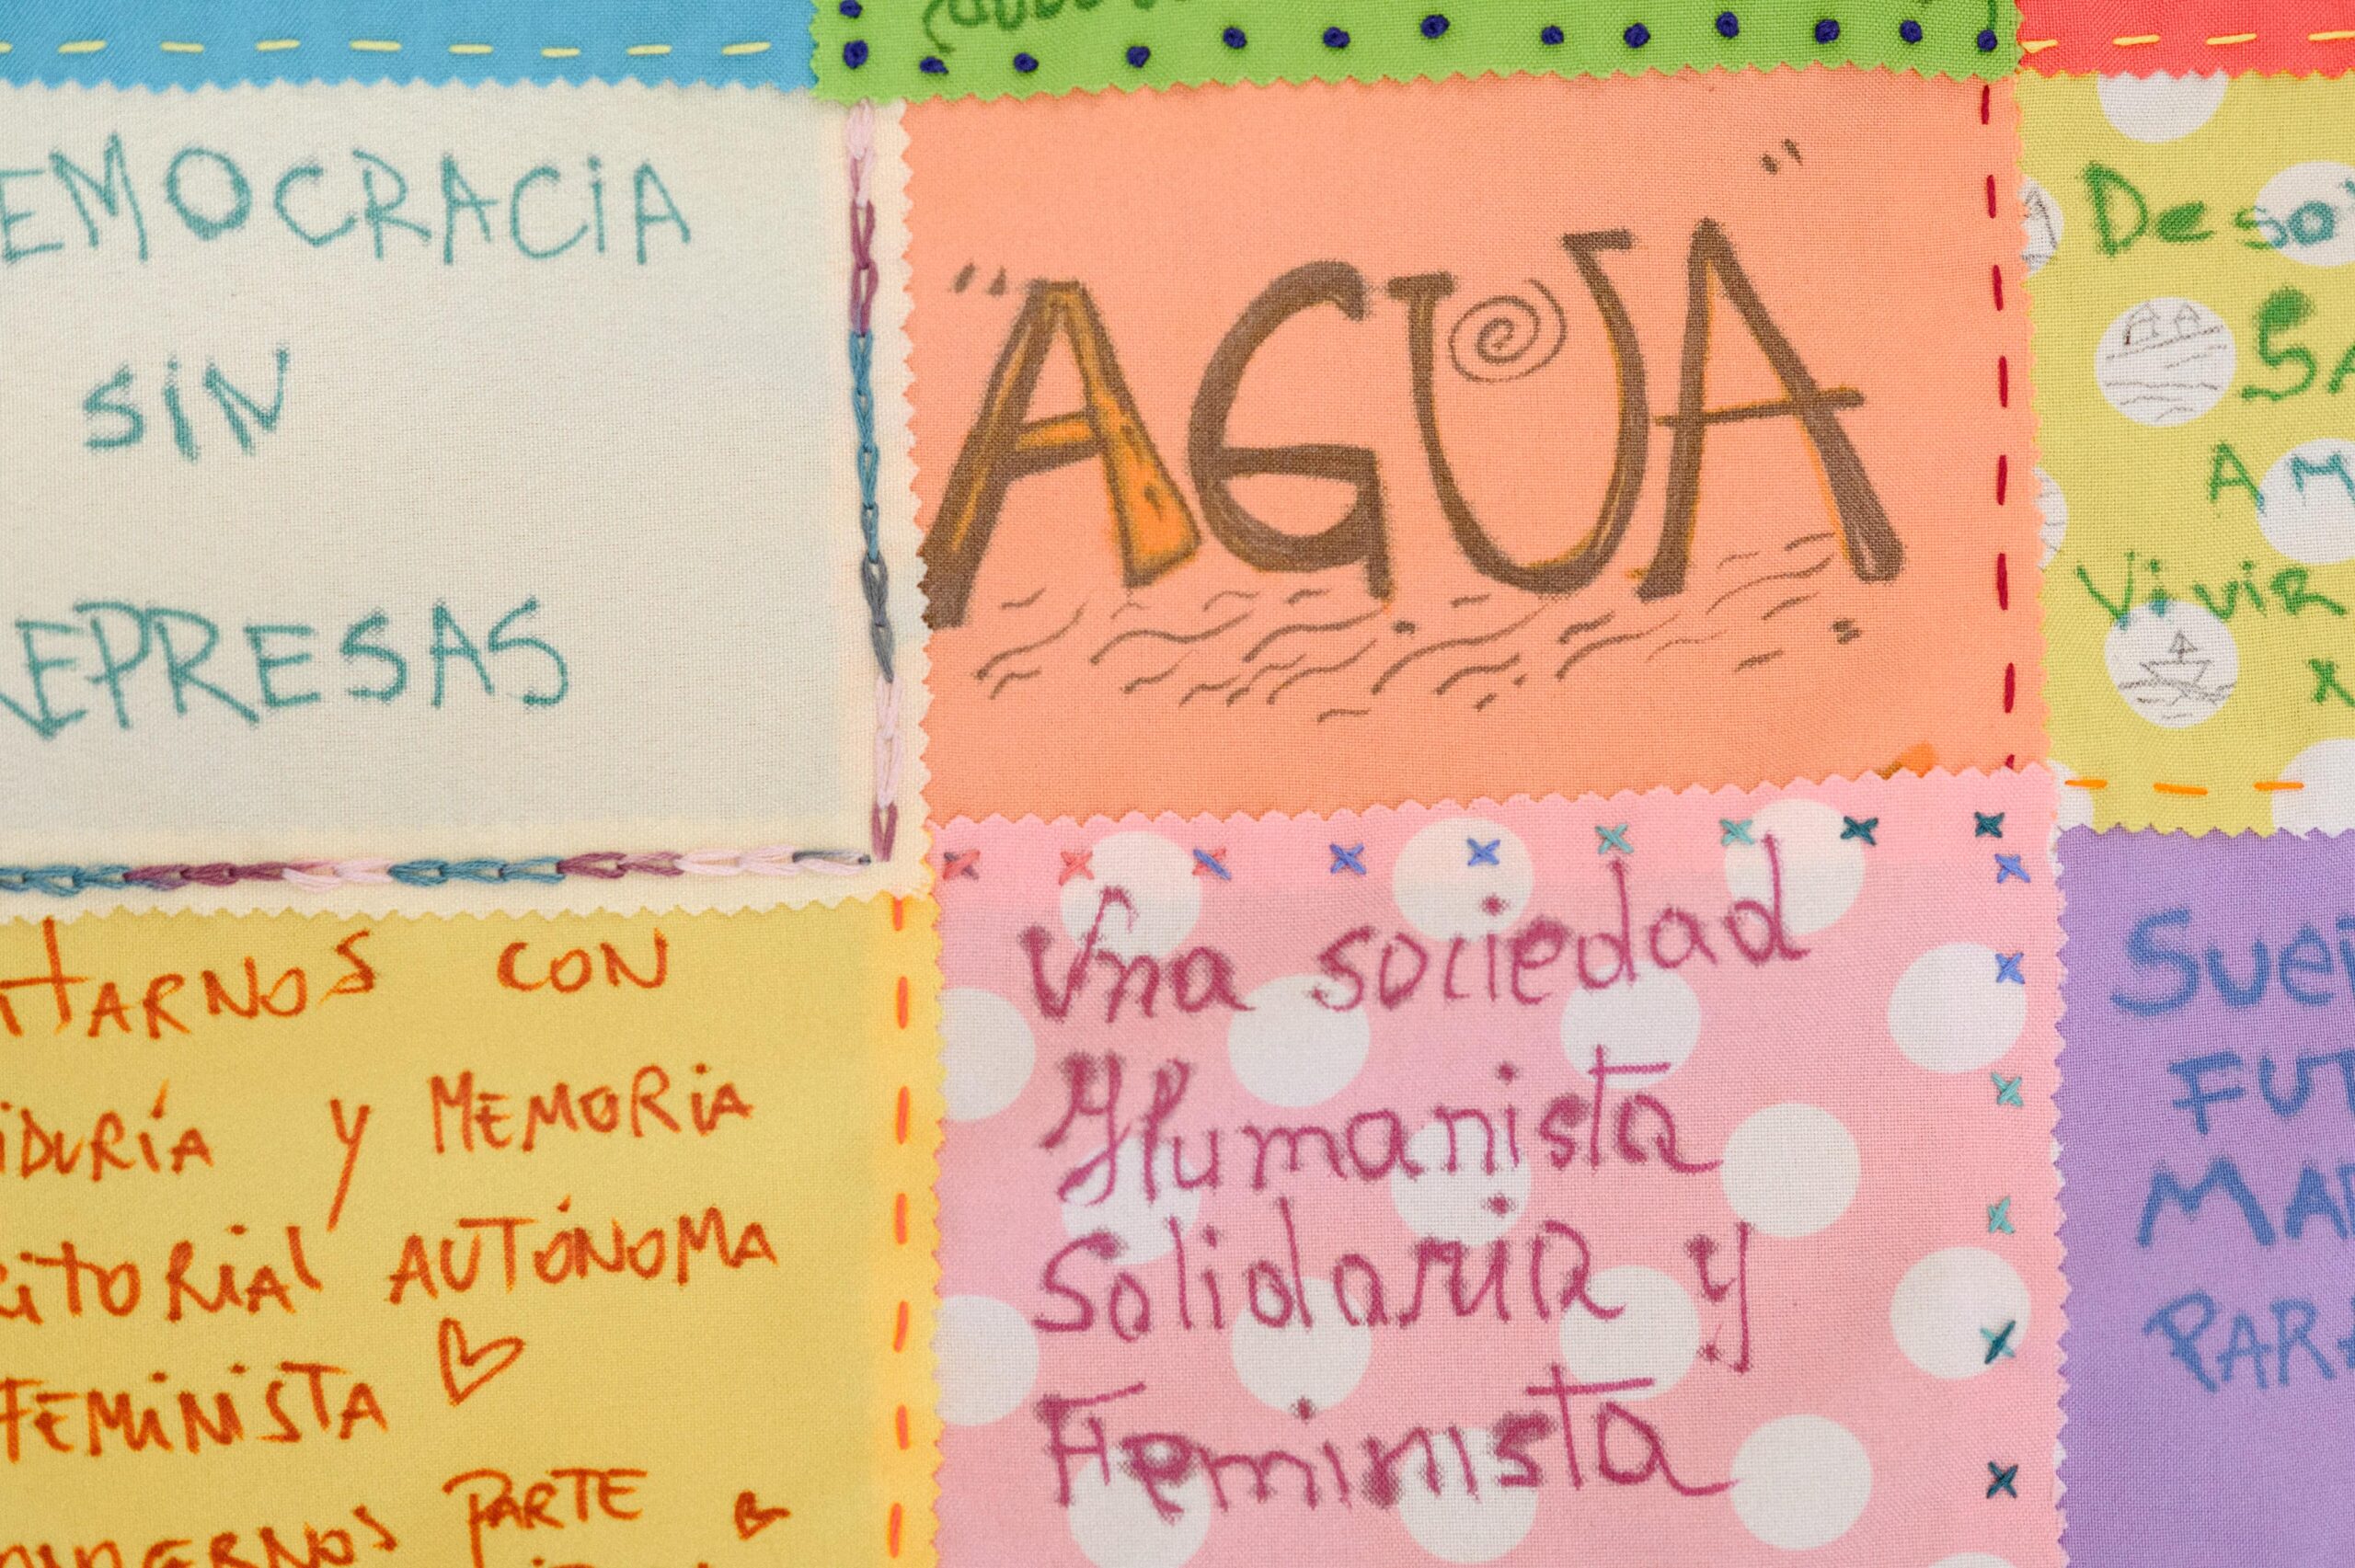 EMOCRACIA
SIN
REPRESAS
"AGUA"
Deso
SA
AM
Vivir
x
TARNOS CON
IDURÍA Y MEMORIA
RITORIAL AUTÓNOMA
FEMINISTA
PARTE
Una sociedad
Humanista
Solidaria y
Feminista
Suei
FUT
MAR
PARA